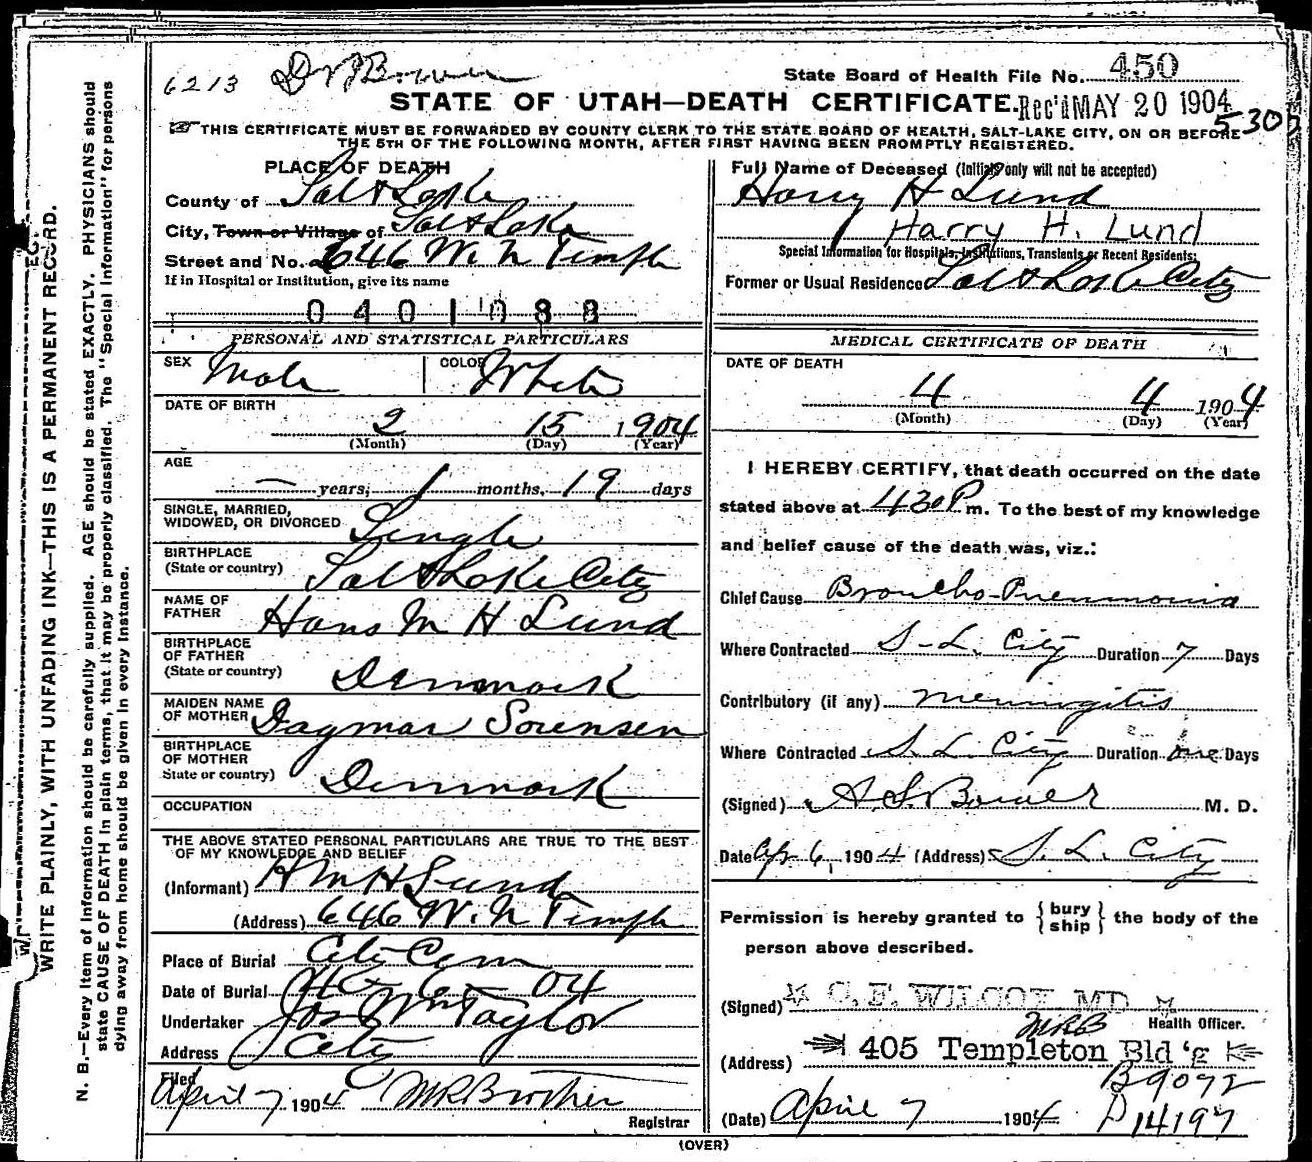 6213
State Board of Health File No. 450
STATE OF UTAH—DEATH CERTIFICATE.
Rec'd MAY 20 1904
530
☞ THIS CERTIFICATE MUST BE FORWARDED BY COUNTY CLERK TO THE STATE BOARD OF HEALTH, SALT-LAKE CITY, ON OR BEFORE
THE 5TH OF THE FOLLOWING MONTH, AFTER FIRST HAVING BEEN PROMPTLY REGISTERED.
PLACE OF DEATH
County of Salt Lake
City, Town or Village of Salt Lake
Street and No. 646 W. N Temple
If in Hospital or Institution, give its name
0401088
PERSONAL AND STATISTICAL PARTICULARS
SEX Male COLOR White
DATE OF BIRTH
2 15 1904
(Month) (Day) (Year)
AGE
— years, 1 months, 19 days
SINGLE, MARRIED,
WIDOWED, OR DIVORCED Single
BIRTHPLACE
(State or country) Salt Lake City
NAME OF
FATHER Hans M H Lund
BIRTHPLACE
OF FATHER
(State or country) Denmark
MAIDEN NAME
OF MOTHER Dagmar Sorensen
BIRTHPLACE
OF MOTHER
State or country) Denmark
OCCUPATION
THE ABOVE STATED PERSONAL PARTICULARS ARE TRUE TO THE BEST
OF MY KNOWLEDGE AND BELIEF
(Informant) H M H Lund
(Address) 646 W. N Temple
Place of Burial City Cem
Date of Burial 4-6-04
Undertaker Jos Wm Taylor
Address City
Filed
April 7 1904
Registrar
Full Name of Deceased (Initials only will not be accepted)
Harry H Lund
Harry H. Lund
Special Information for Hospitals, Institutions, Transients or Recent Residents:
Former or Usual Residence Salt Lake City
MEDICAL CERTIFICATE OF DEATH
DATE OF DEATH
4 4 1904
(Month) (Day) (Year)
I HEREBY CERTIFY, that death occurred on the date
stated above at 430 P m. To the best of my knowledge
and belief cause of the death was, viz.:
Chief Cause Broncho-Pneumonia
Where Contracted S-L. City Duration 7 Days
Contributory (if any) meningitis
Where Contracted S. L. City Duration one Days
(Signed) A. S. Bower M. D.
Date Apr 6, 1904 (Address) S. L. City
Permission is hereby granted to {bury
ship} the body of the
person above described.
(Signed) C. F. WILCOX MD
MRB Health Officer.
(Address) 405 Templeton Bld'g
B9072
(Date) April 7 1904 D14197
(OVER)
WRITE PLAINLY, WITH UNFADING INK—THIS IS A PERMANENT RECORD.
N. B.—Every item of information should be carefully supplied. AGE should be stated EXACTLY. PHYSICIANS should
state CAUSE OF DEATH in plain terms, that it may be properly classified. The "Special Information" for persons
dying away from home should be given in every instance.